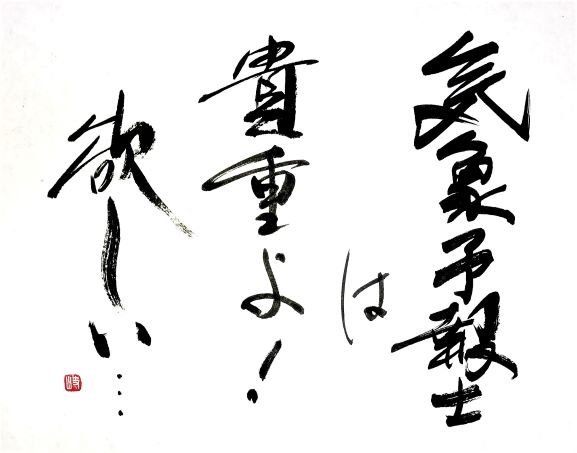 気象予報士
は
貴重よ！
欲しい…